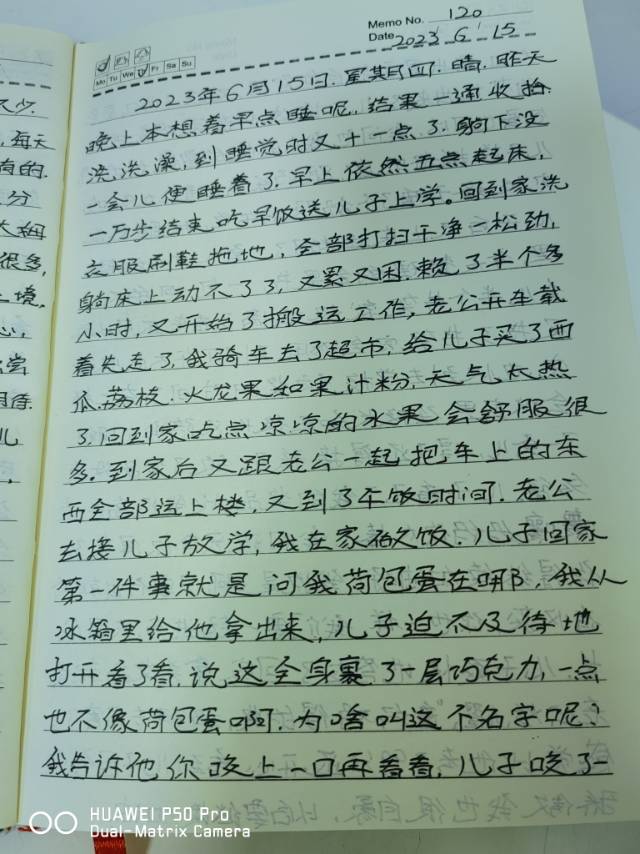 Memo No. 120
Date 2023 6 15
Mo Tu We Fr Sa Su
2023年6月15日.星期四.晴.昨天
晚上本想着早点睡呢,结果一通收拾
洗洗澡,到睡觉时又十一点了.躺下没
一会儿便睡着了.早上依然五点起床,
一万步结束吃早饭送儿子上学。回到家洗
衣服刷鞋拖地,全部打扫干净一松劲,
躺床上动不了了,又累又困.赖了半个多
小时,又开始了搬运工作,老公开车载
着先走了.我骑车去了超市,给儿子买了西
瓜.荔枝.火龙果和果汁粉,天气太热
了.回到家吃点凉凉的水果会舒服很
多.到家后又跟老公一起把车上的东
西全部运上楼,又到了午饭时间.老公
去接儿子放学,我在家做饭.儿子回家
第一件事就是问我荷包蛋在哪,我从
冰箱里给他拿出来,儿子迫不及待地
打开看了看,说这全身裹了一层巧克力,一点
也不像荷包蛋啊.为啥叫这个名字呢?
我告诉他你咬上一口再看看,儿子咬了一
HUAWEI P50 Pro
Dual-Matrix Camera